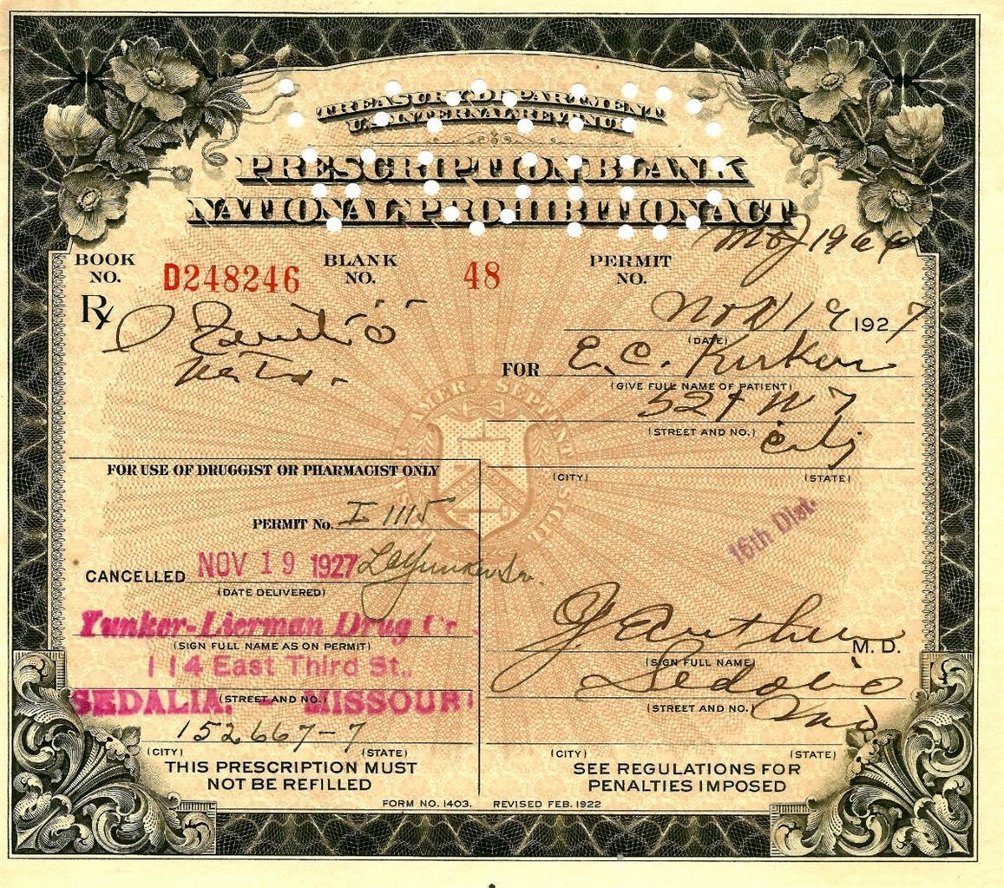 TREASURY DEPARTMENT
U.S. INTERNAL REVENUE
PRESCRIPTION BLANK
NATIONAL PROHIBITION ACT
BOOK NO. D248246 BLANK NO. 48 PERMIT NO.
Rx
Nov 19 1927
(DATE)
FOR E. C.
(GIVE FULL NAME OF PATIENT)
W 7
(STREET AND NO.)
City
(CITY) (STATE)
FOR USE OF DRUGGIST OR PHARMACIST ONLY
PERMIT No. I 1115
16th Dist.
CANCELLED NOV 19 1927
(DATE DELIVERED)
Yunker-Lierman Drug Co
(SIGN FULL NAME AS ON PERMIT)
114 East Third St.,
(STREET AND NO.)
SEDALIA, MISSOURI
152667-7
(CITY) (STATE)
M. D.
(SIGN FULL NAME)
Sedalia
(STREET AND NO.)
Mo
(CITY) (STATE)
THIS PRESCRIPTION MUST
NOT BE REFILLED
SEE REGULATIONS FOR
PENALTIES IMPOSED
FORM NO. 1403. REVISED FEB. 1922